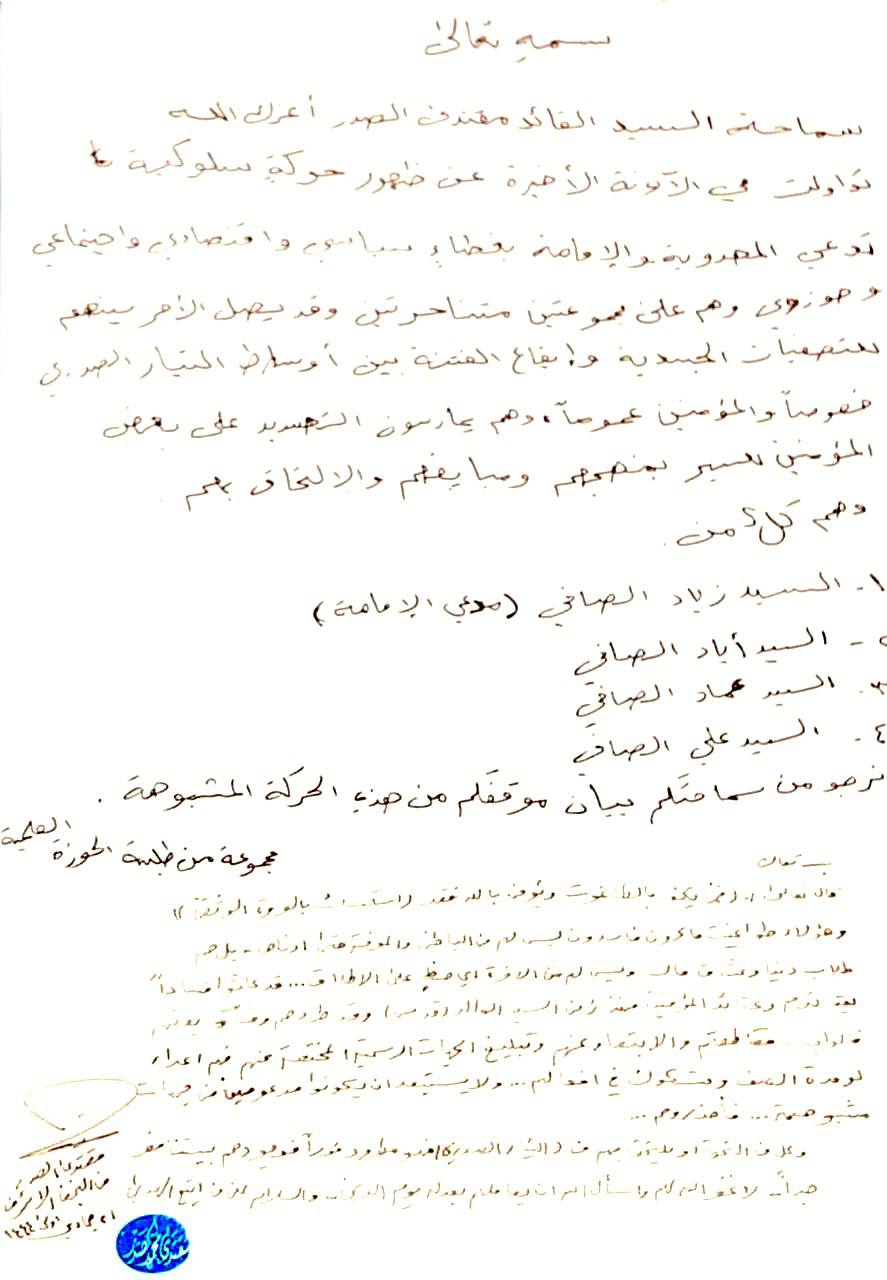 بسمه تعالى
سماحة السيد القائد مقتدى الصدر أعزك الله
تداولت في الآونة الأخيرة عن ظهور حركة سلوكية
تدعي المهدوية والإمامة بغطاءٍ سياسي واقتصادي واجتماعي
وحوزوي وهم على مجموعتين متناحرتين وقد يصل الأمر بينهم
للتصفيات الجسدية وإيقاع الفتنة بين أوساط التيار الصدري
خصوصاً والمؤمنين عموماً، وهم يمارسون التهديد على بعض
المؤمنين للسير بمنهجهم ومبايعتهم والالتحاق بهم
وهم كلٌ من
١- السيد زياد الصافي (مدعي الإمامة)
٢- السيد أياد الصافي
٣- السيد عماد الصافي
٤- السيد علي الصافي
نرجو من سماحتكم بيان موقفكم من هذه الحركة المشبوهة .
مجموعة من طلبة الحوزة العلمية
بسمه تعالى
قال تعالى: (فمن يكفر بالطاغوت ويؤمن بالله فقد استمسك بالعروة الوثقى)
وهؤلاء فاسدون ليس لهم من الباطن والمعرفة أدناها.. بل هم
طلاب دنيا وعشاق مال وليس لهم من الآخرة أي حظ على الإطلاق... قد عاثوا فساداً
المؤمنين منذ زمن السيد الوالد (قدس) وقد طردهم
مقاطعتهم والابتعاد عنهم وتبليغ الجهات الرسمية المختصة عنهم فهم أعداء
لوحدة الصف في أفعالهم... ولا يستبعد أن يكونوا مدعومين من جهات
مشبوهة... فاحذروهم...
(التيار الصدري) فهو مطرود فوراً فوجودهم بيننا مضر
جداً.. لا غفر الله لهم وأسأل الله أن يعاملهم بعدله يوم والسلام على من اتبع الهدى
مقتدى الصدر
من النجف الأشرف
٢١ جمادى الأولى ١٤٤٤